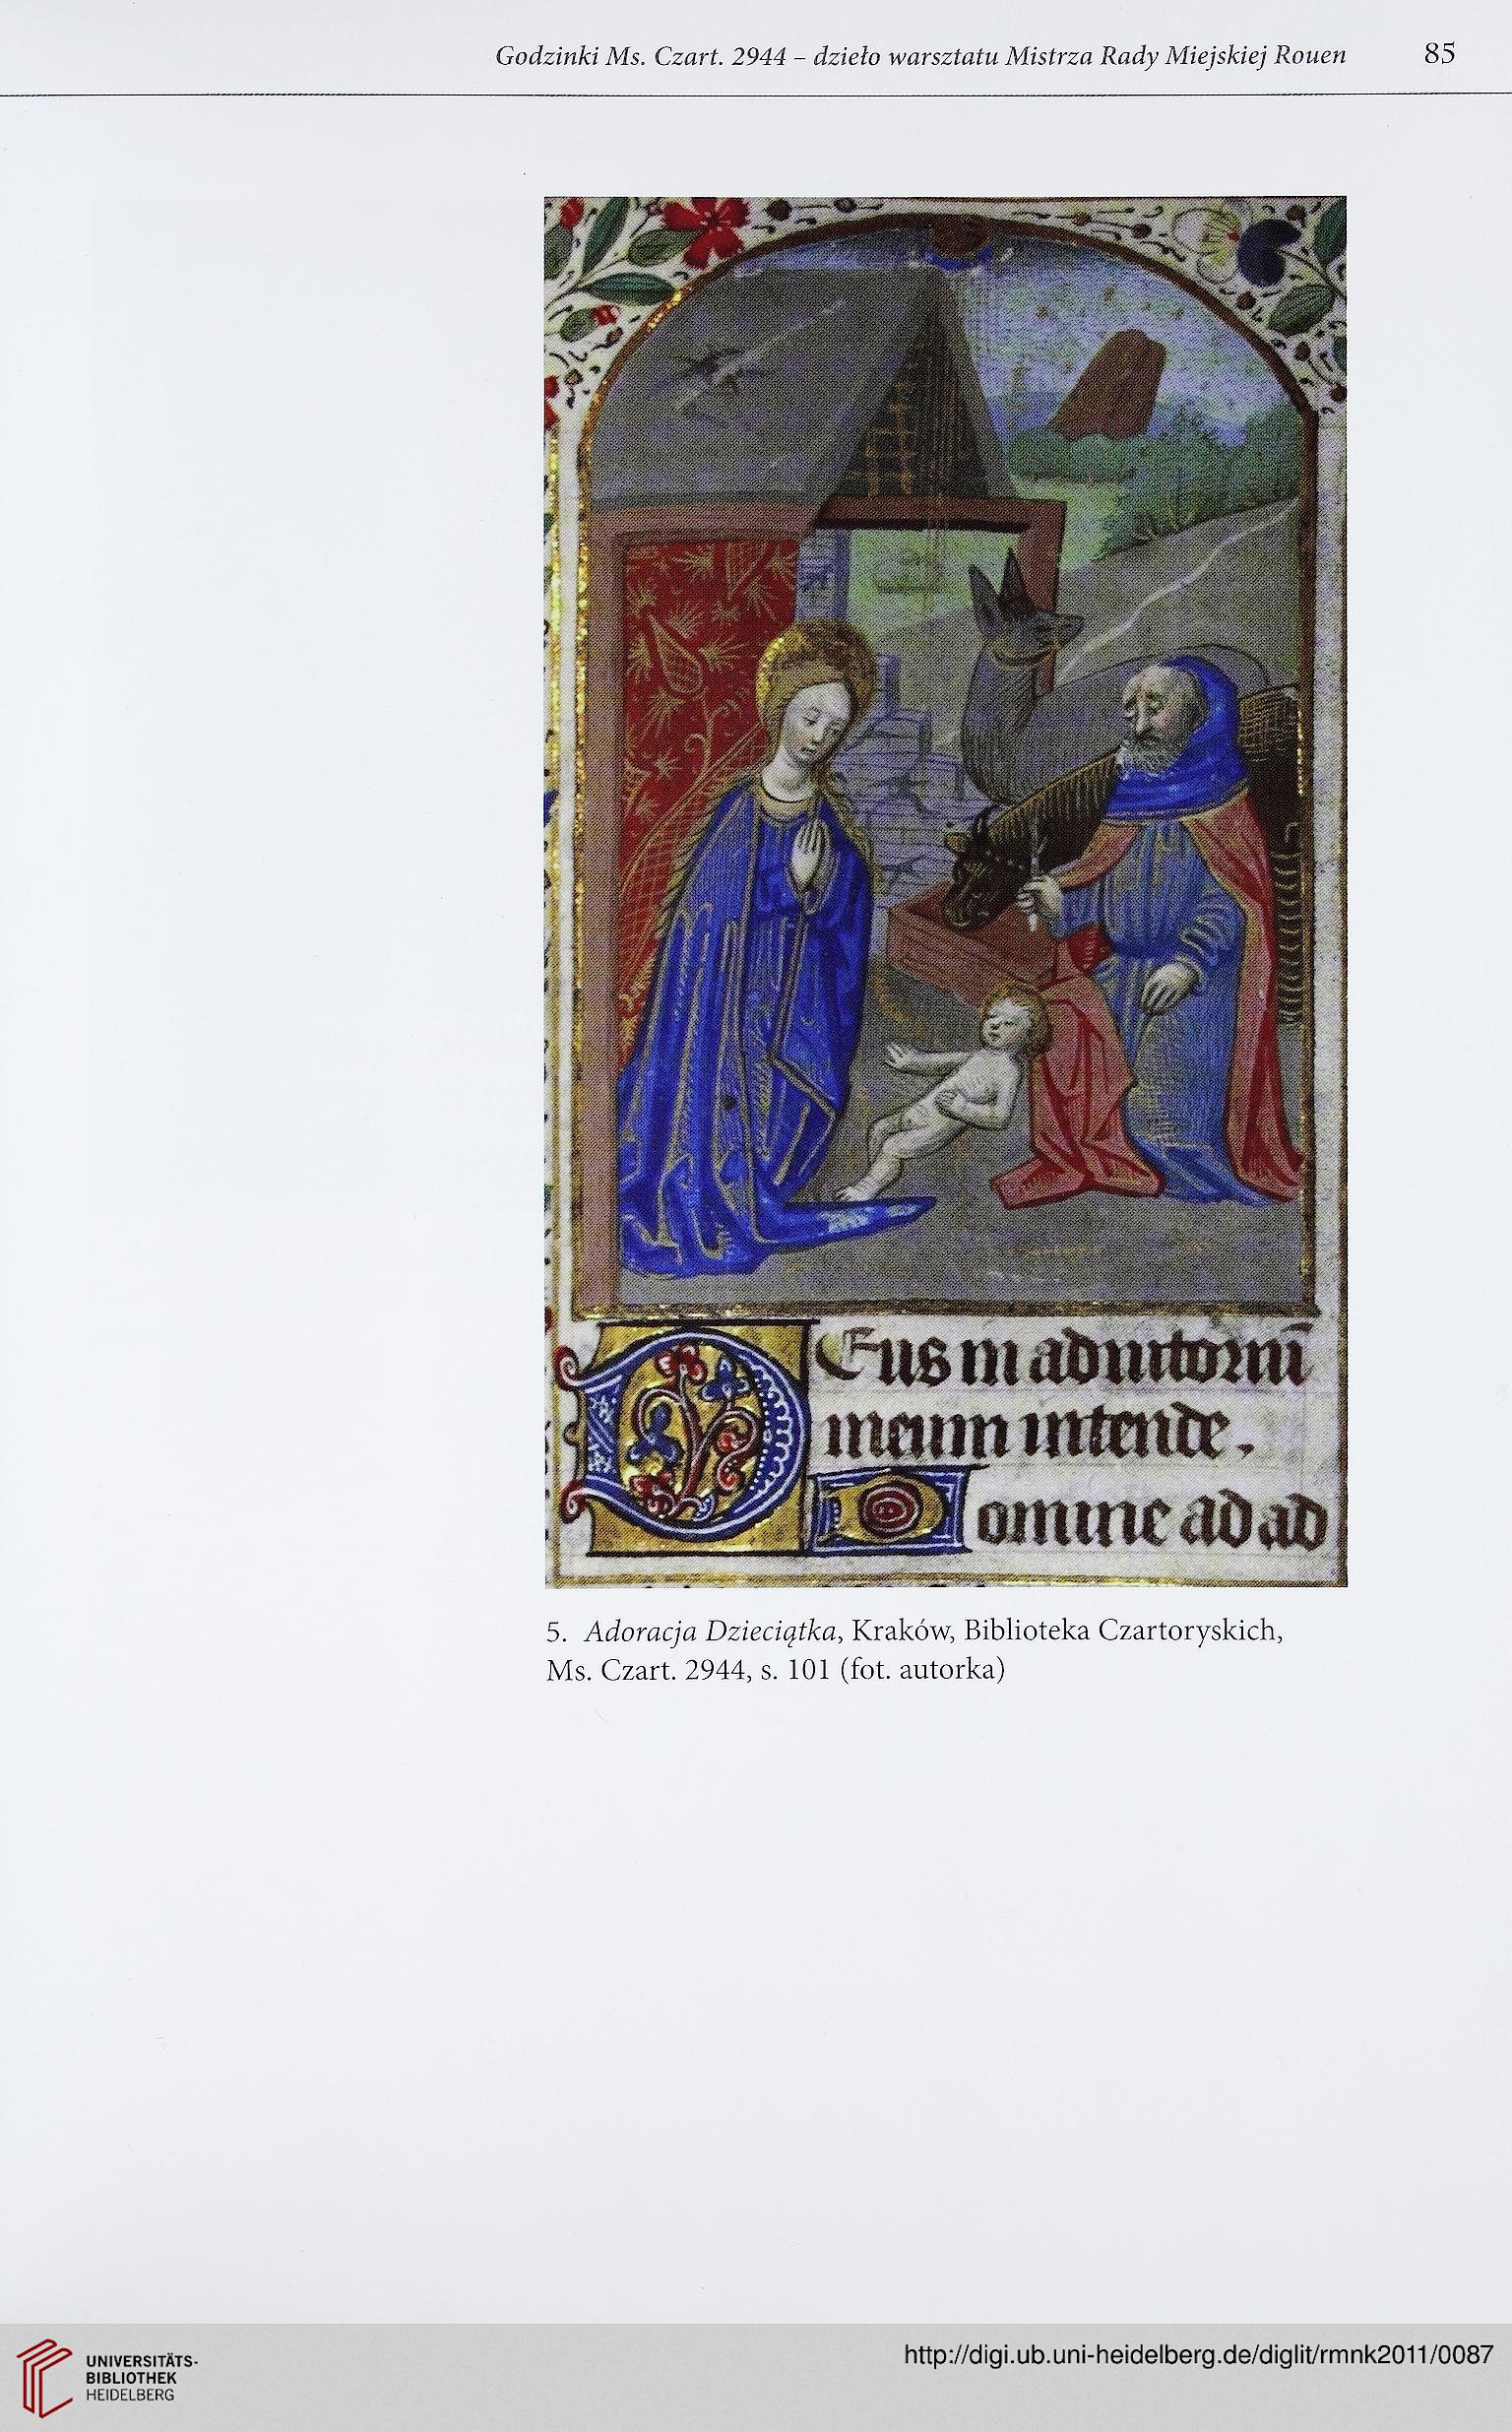 Godzinki Ms. Czart. 2944 – dzieło warsztatu Mistrza Rady Miejskiej Rouen 85
Deus in adiutoriū
meum intende.
Domine ad ad
5. Adoracja Dzieciątka, Kraków, Biblioteka Czartoryskich,
Ms. Czart. 2944, s. 101 (fot. autorka)
UNIVERSITÄTS-
BIBLIOTHEK
HEIDELBERG
http://digi.ub.uni-heidelberg.de/diglit/rmnk2011/0087